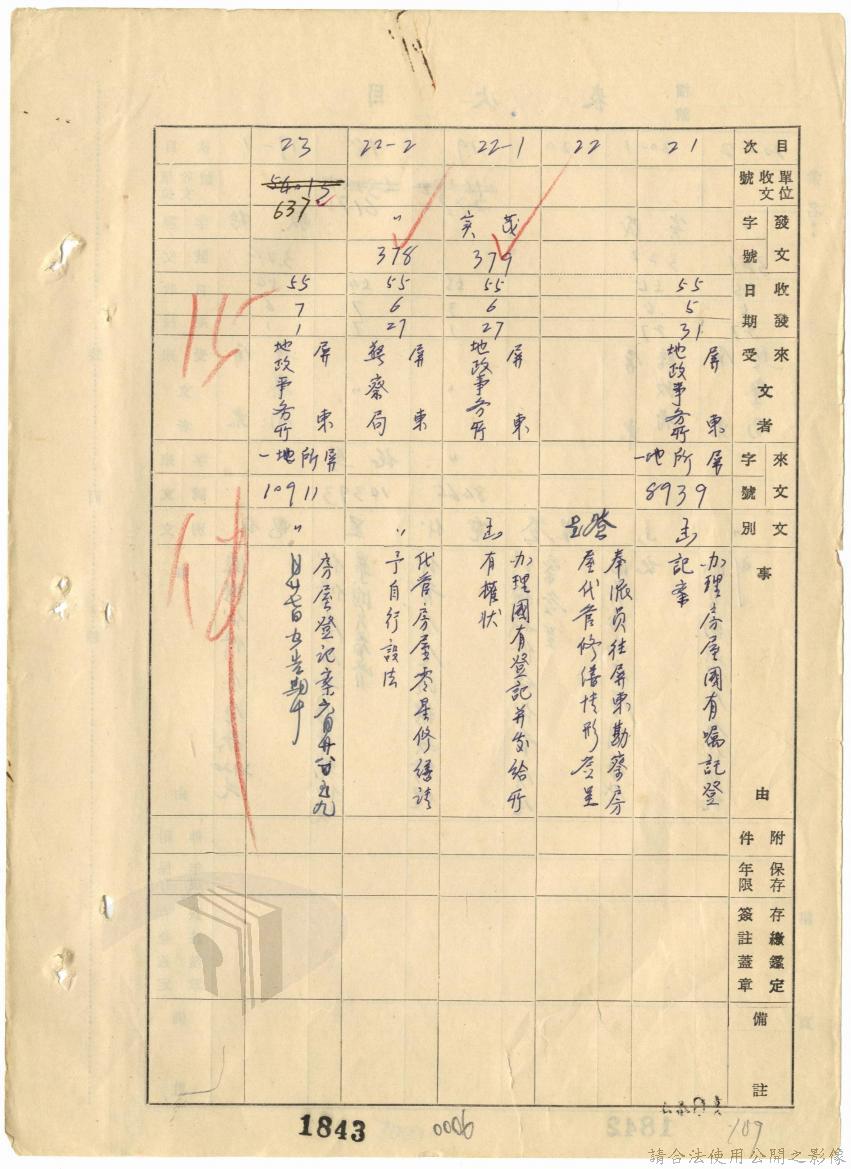 目次
單位收文號
發文字號
收發日期
來受文者
來文字號
文別
事由
附件
保存年限
存繳鑑定簽註蓋章
備註
21
55
5
31
屏東
地政事务所
屏所地一
8939
函
办理房屋國有嘱託登
記案
22
签
奉派员往屏東勘察房
屋代管修繕情形
22-1
茂实
379
55
6
27
屏東
地政事务所
函
办理國有登記并发给所
有權狀
22-2
〃
378
55
6
27
屏東
警察局
〃
代管房屋零星修繕請
予自行設法
23
637
55
7
1
屏東
地政事务所
屏所地一
10911
〃
房屋登記案六月廿
15
1843
0006
109
請合法使用公開之影像